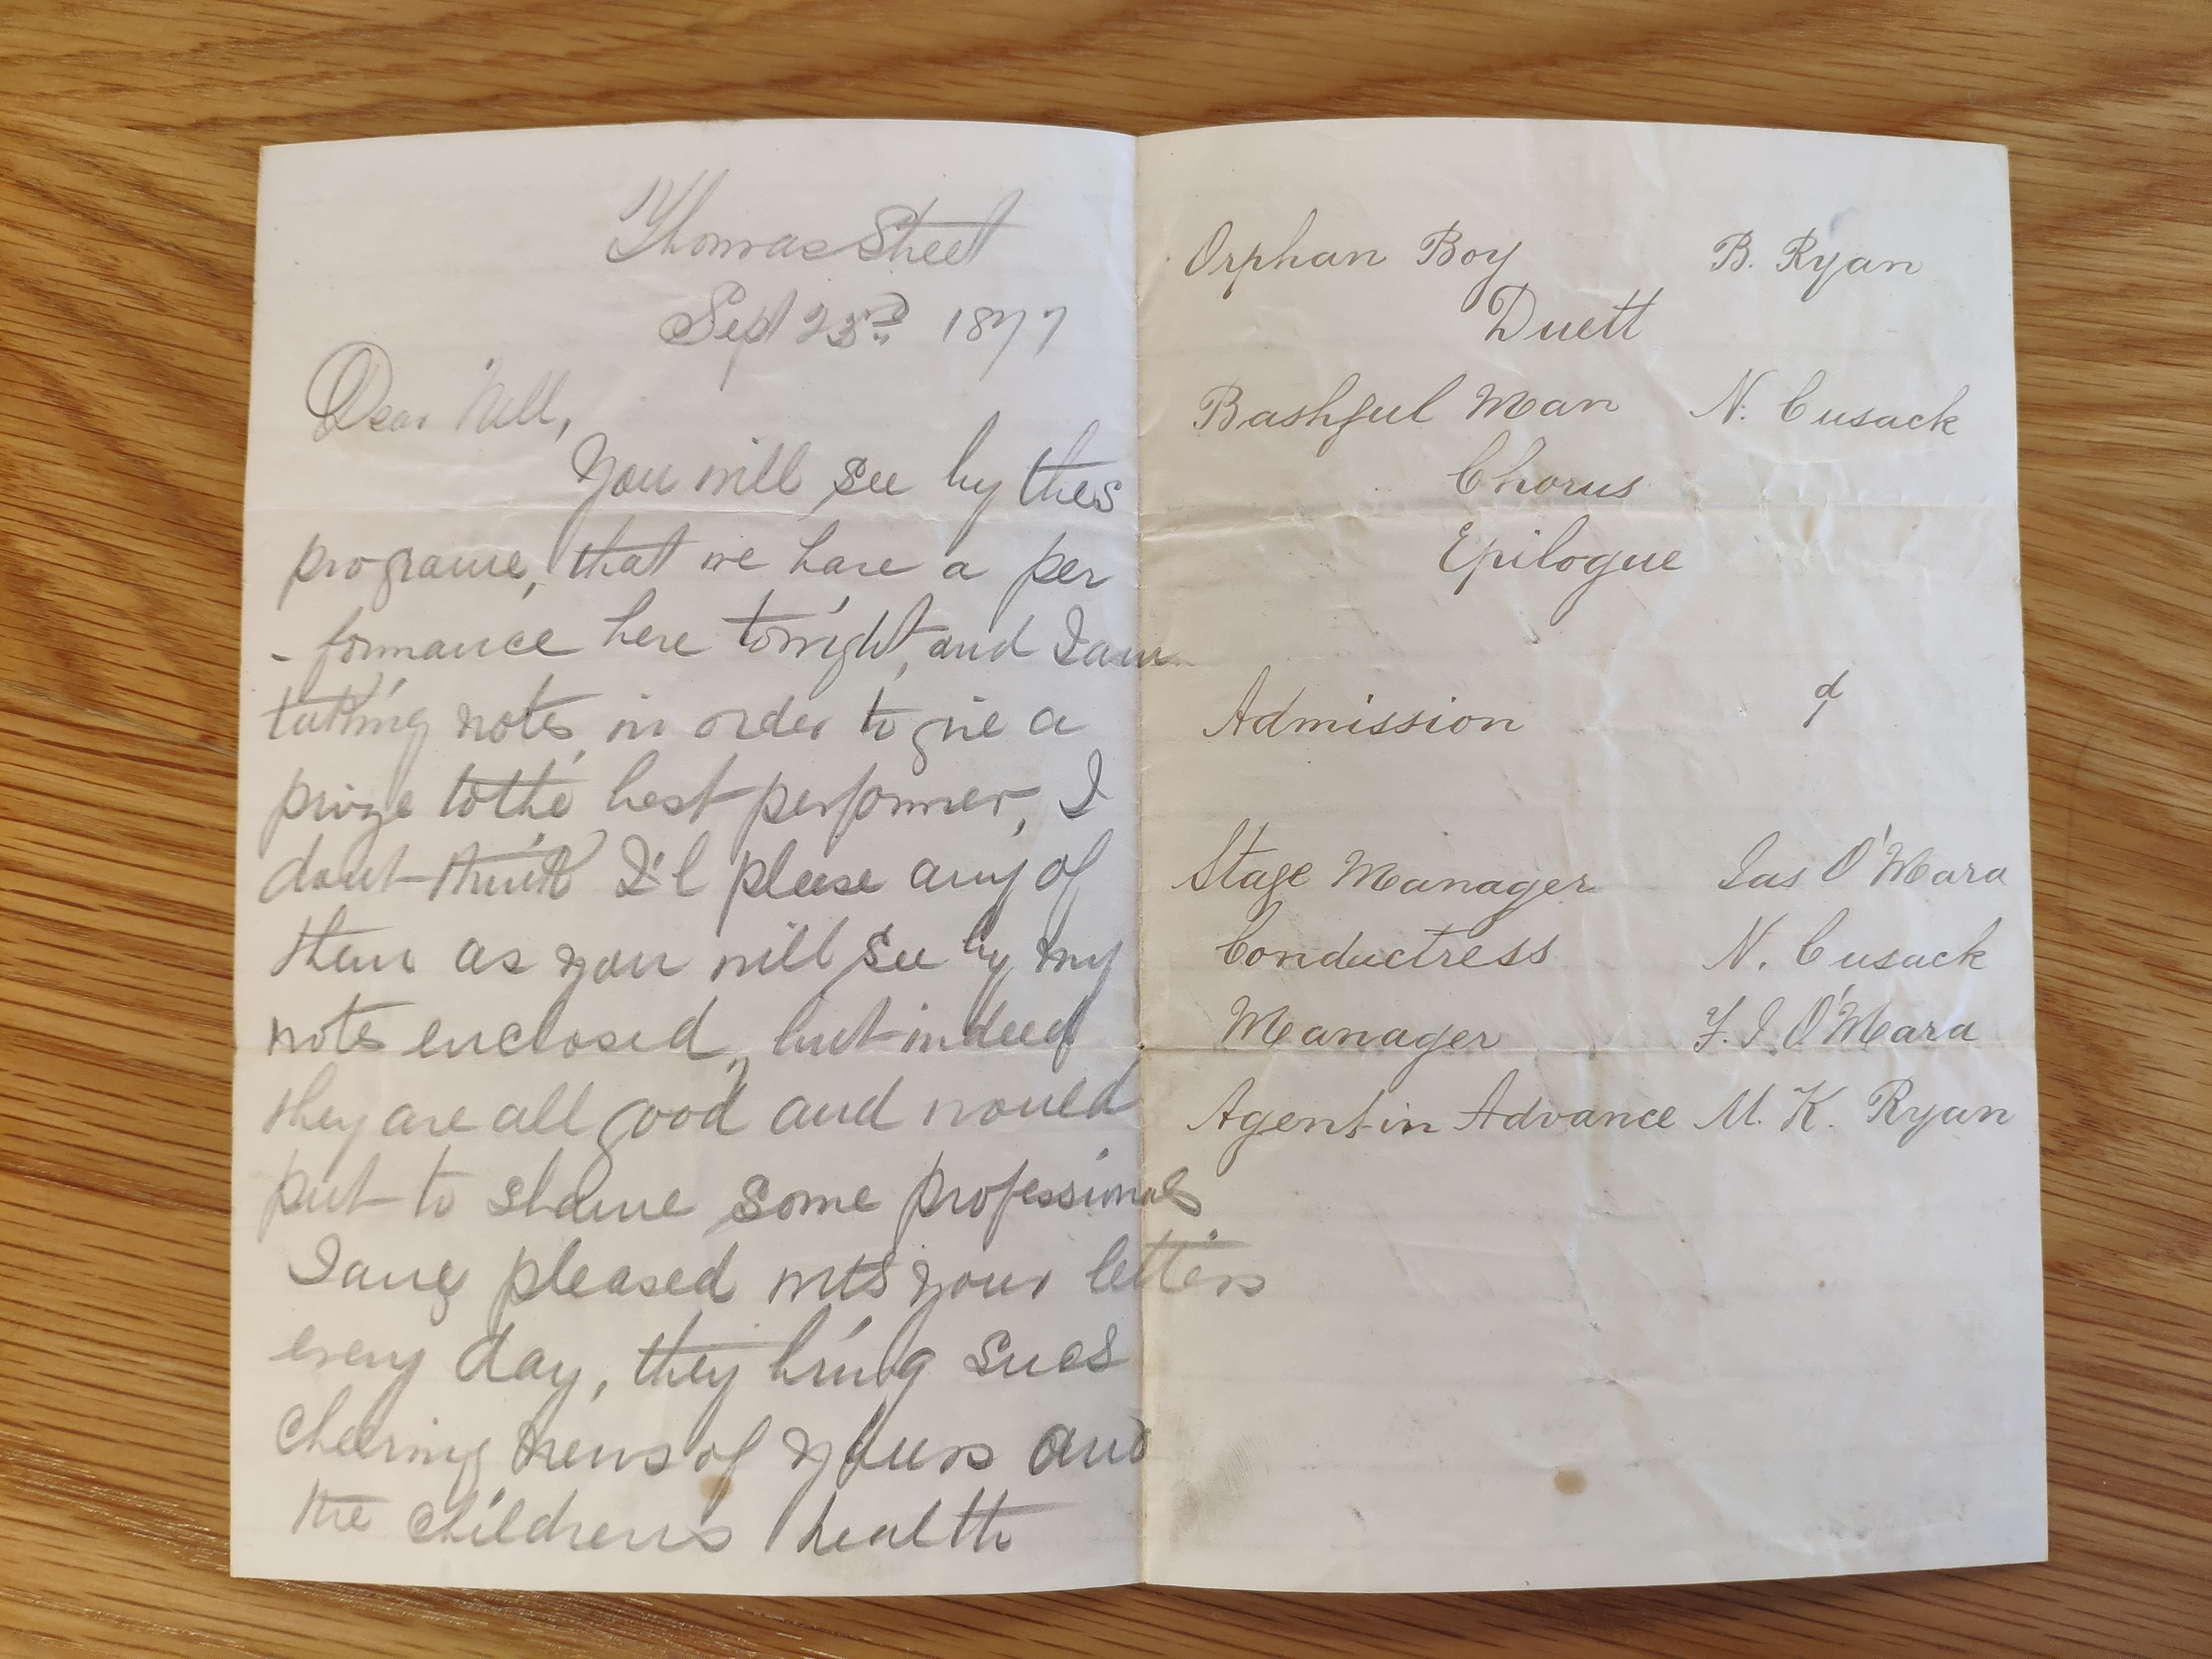 Thomas Street
Sept 23rd 1877
Dear Nell,
You will see by thes
programe, that we have a per
- formance here tonight, and I am
taking notes, in order to give a
prize to the best performer, I
dont think I'l please any of
them as you will see by my
notes enclosed, but indeed
they are all good and would
put to shame some professionals
I am pleased with your letters
every day, they bring such
cheering news of yours and
the childrens health
Orphan Boy B. Ryan
Duett
Bashful Man N. Cusack
Chorus
Epilogue
Admission
Stage Manager Jas O'Mara
Conductress N. Cusack
Manager F. J. O'Mara
Agent in Advance M. K. Ryan